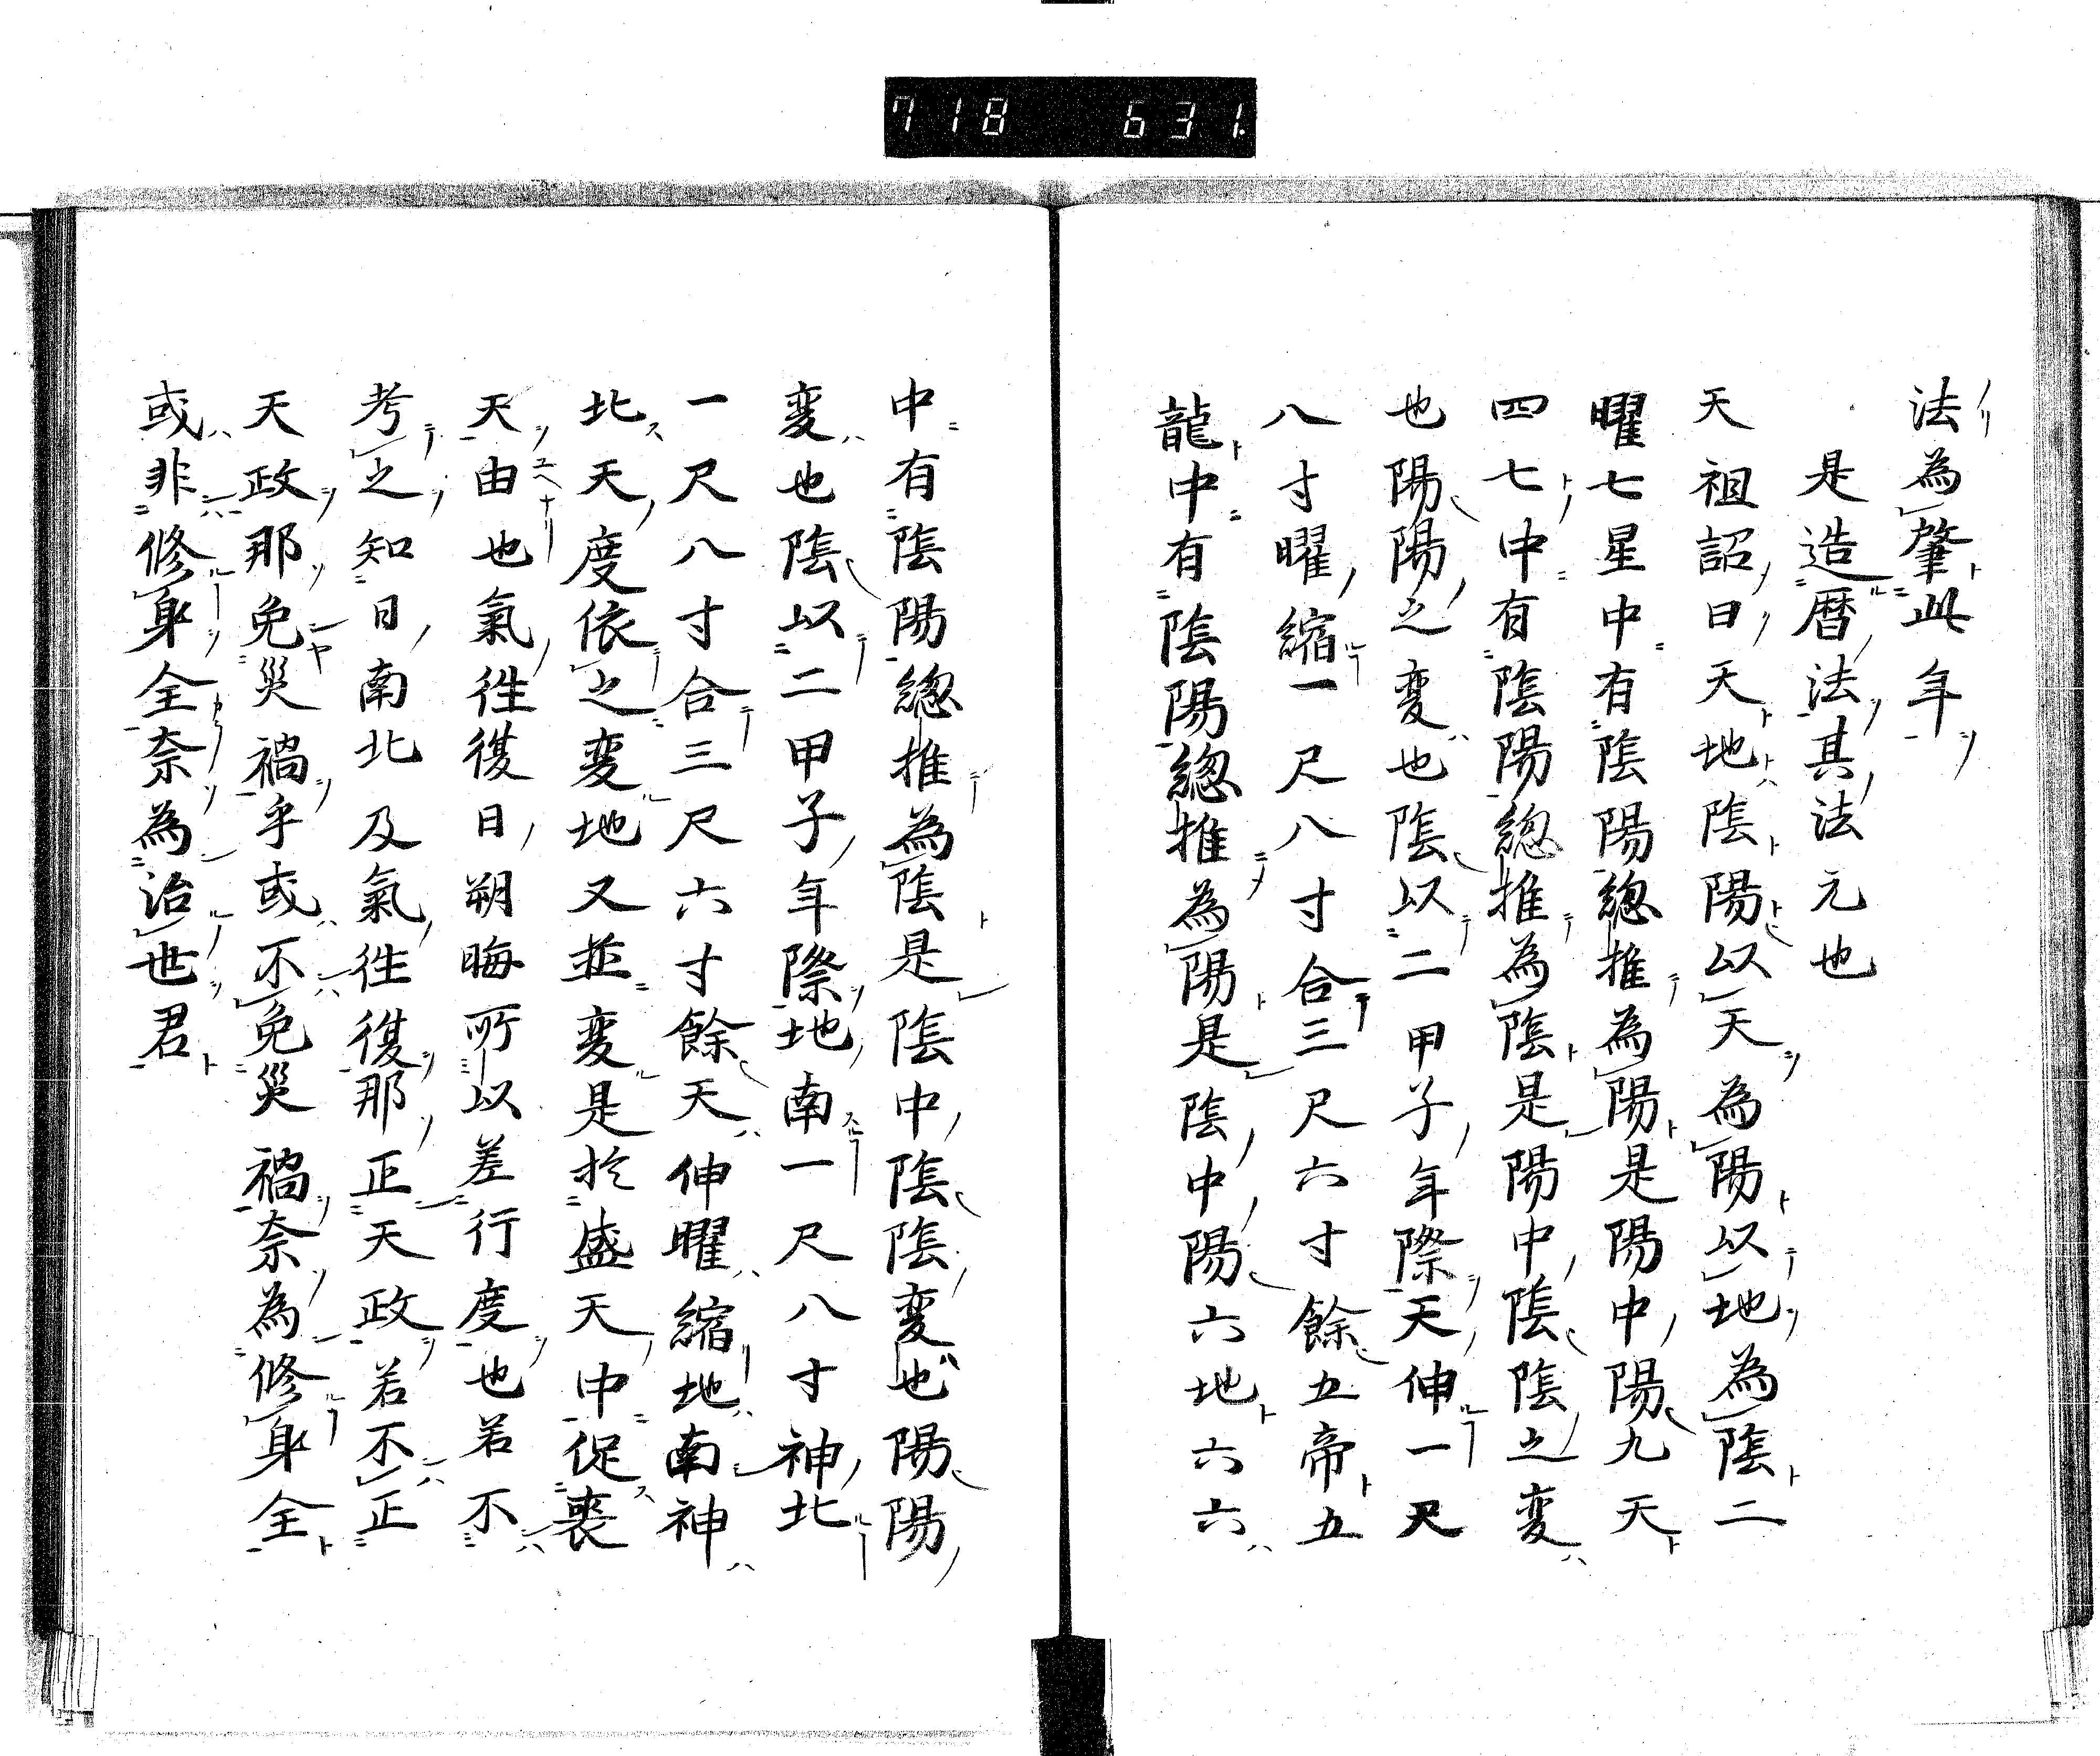 718 631.
法為肇此年
是造暦法其法元也
天祖詔曰天地陰陽以天為陽以地為陰二
曜七星中有陰陽總推為陽是陽中陽九天
四七中有陰陽總推為陰是陽中陰陰之変
也陽陽之変也陰以二甲子年際天伸一尺
八寸曜縮一尺八寸合三尺六寸餘五帝五
龍中有陰陽總推為陽是陰中陽六地六六
中有陰陽總推為陰是陰中陰陰変也陽陽
変也陰以二甲子年際地南一尺八寸神北
一尺八寸合三尺六寸餘天伸曜縮地南神
北天度依之変地又並変是於盛天中促喪
天由也氣徃復日朔晦所以差行度也若不
考之知日南北及氣徃復那正天政若不正
天政那免災禍乎或不免災禍奈為修身全
或非修身全奈為治世君